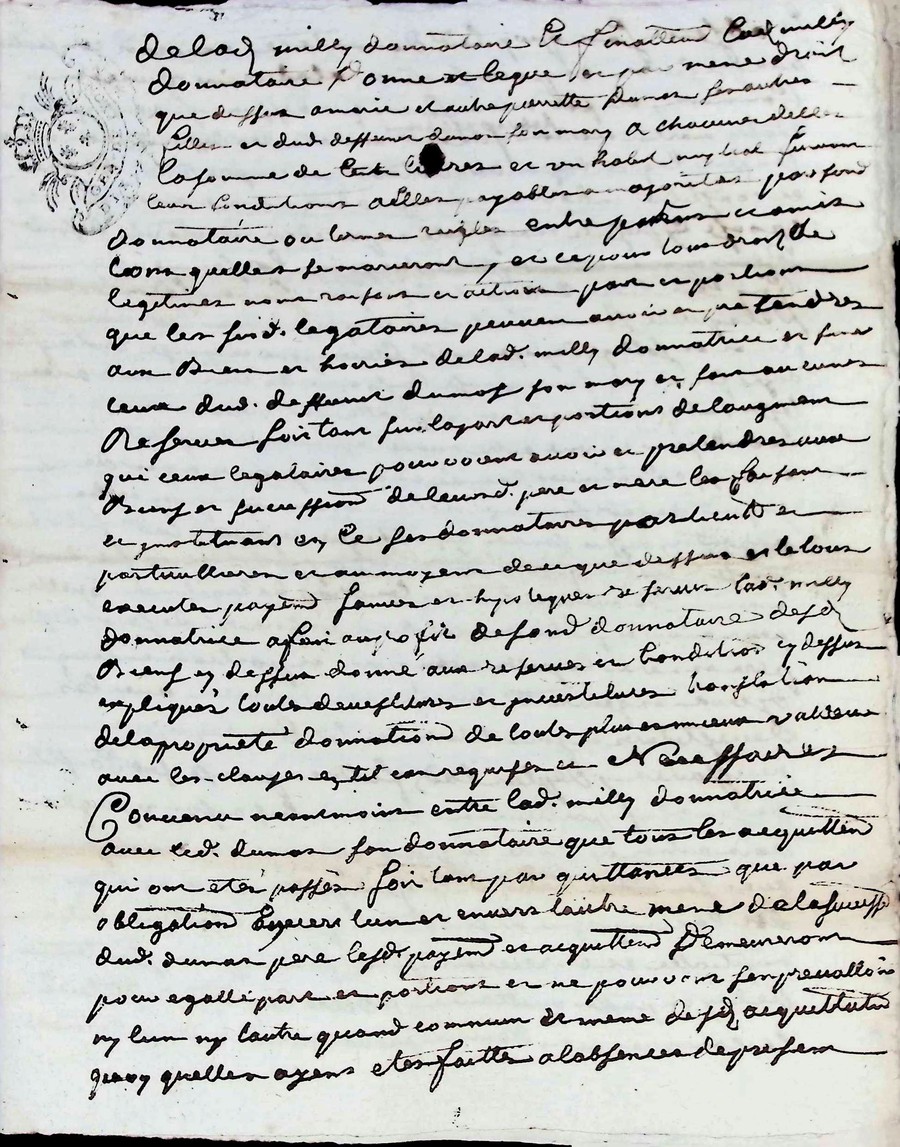 de lad milly donnataire Et finallem lad milly
donnataire donne et legue et par meme droit
que dessus a marie et autre pierrette dumas ses autres
filles et dud. deffunt dumas son mary a chacune delles
la somme de Cent livres et un habit nuptial suivan
leur Conditions a elles payables a majorites par son d
donnataire ou termes regles entre parens et amis
lors quelles se marieront, et ce pour tous droits de
legitimes noms raisons et actions part et portions
que les susd. legataires peuven avoir et pretendres
aux Biens et hoiries de lad. milly donnatrice et sur
ceux dud. deffunt dumas son mary et sans aucunes
Reserves soit tant sur la part et portions de laugment
qui ceux legataires pouvoient avoir et pretendres aux
Biens et succession de leursd. pere et mere les faisant
et instituant en ce ses donnataires
particullieres et au moyens de ce que dessus et le tous
executés payem se lad. milly
donnatrice au profit de sond donnataire desd
Biens cy dessus donné aux reserves et Condition cy dessus
expliqués toutes devestitures et investitures translation
de la proprieté donnation de touts plus et mieux values
avec les clauses en tel cas requises et Necessaires
Convenu neanmoins entre lad. milly donnatrice
avec led. dumas son donnataire que tous les acquittem
qui ont etés passés soit tant par quittances que par
obligation Envers lun et envers lautre meme de la success
dud. dumas pere lesd payem et acquittem Demeureront
pour egalle part et portions et ne pouvant sen prevalloir
ny lun ny lautre quand commun et meme desd acquittem
quoy quelles ayent etes faittes a labsences de presens